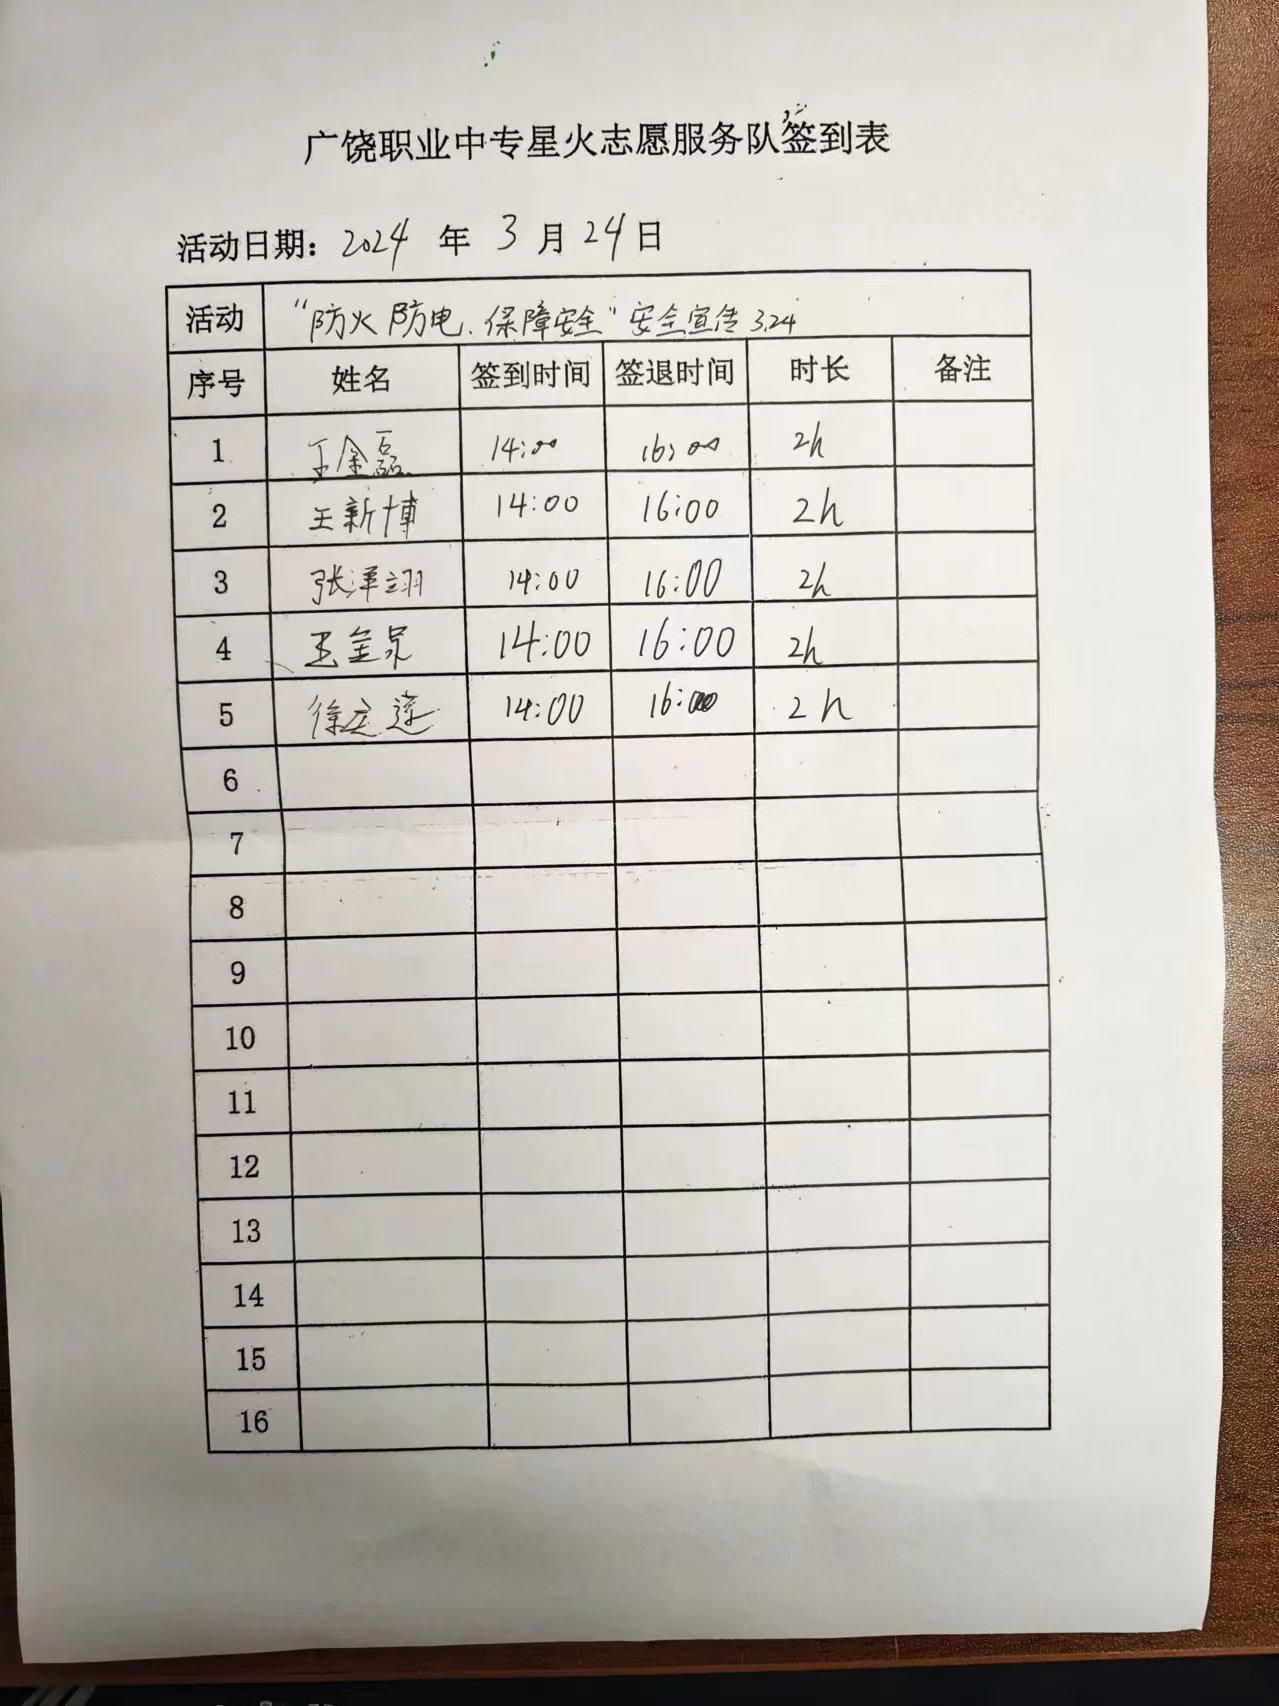 广饶职业中专星火志愿服务队签到表
活动日期：2024 年 3 月 24 日
活动 “防火防电、保障安全”安全宣传 3.24
序号 姓名 签到时间 签退时间 时长 备注
1 王金磊 14:00 16:00 2h
2 王新博 14:00 16:00 2h
3 张泽翊 14:00 16:00 2h
4 王金 14:00 16:00 2h
5 徐 14:00 16:00 2h
6
7
8
9
10
11
12
13
14
15
16